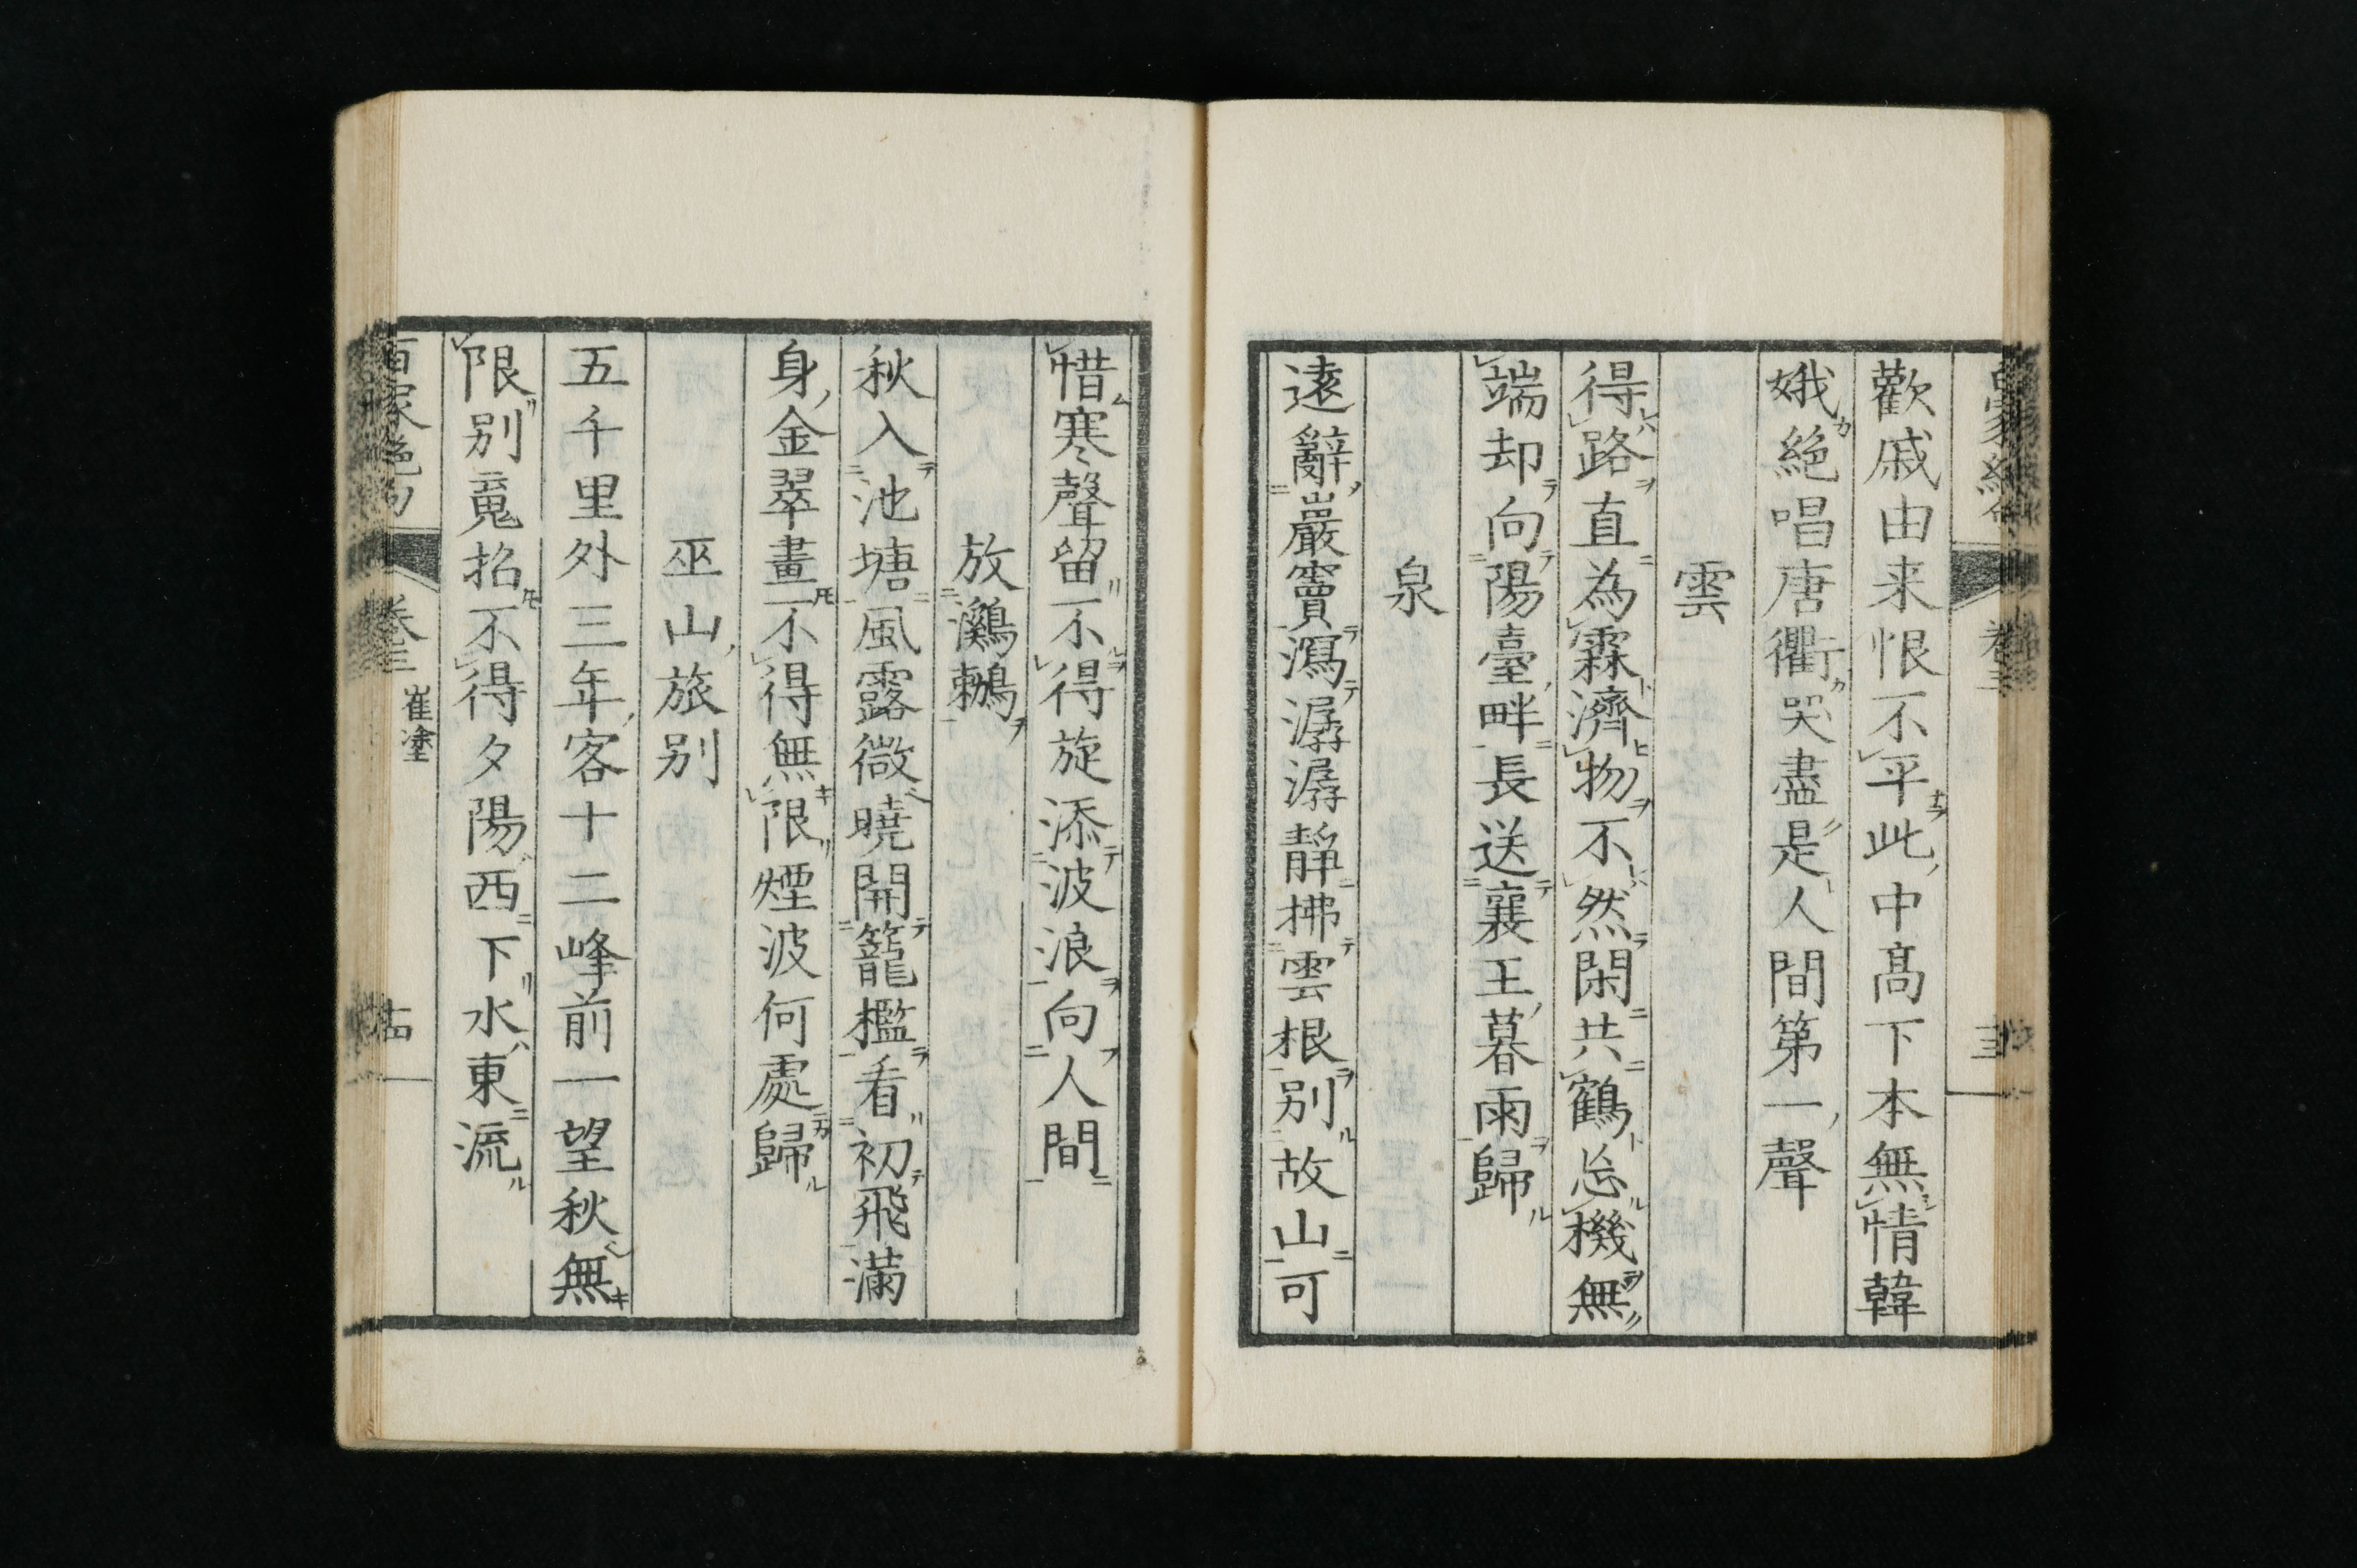 歡戚由来恨不平此中髙下本無情韓
娥絶唱唐衢哭盡是人間第一聲
雲
得路直為霖濟物不然閑共鶴忘機無
端却向陽臺畔長送襄王暮雨歸
泉
遠辭巖竇瀉潺潺靜拂雲根別故山可
惜寒聲留不得旋添波浪向人間
放鸂鶒
秋入池塘風露微曉開籠檻看初飛滿
身金翠畫不得無限煙波何處歸
巫山旅別
五千里外三年客十二峰前一望秋無
限別魂招不得夕陽西下水東流
百家絶句
卷三
崔塗